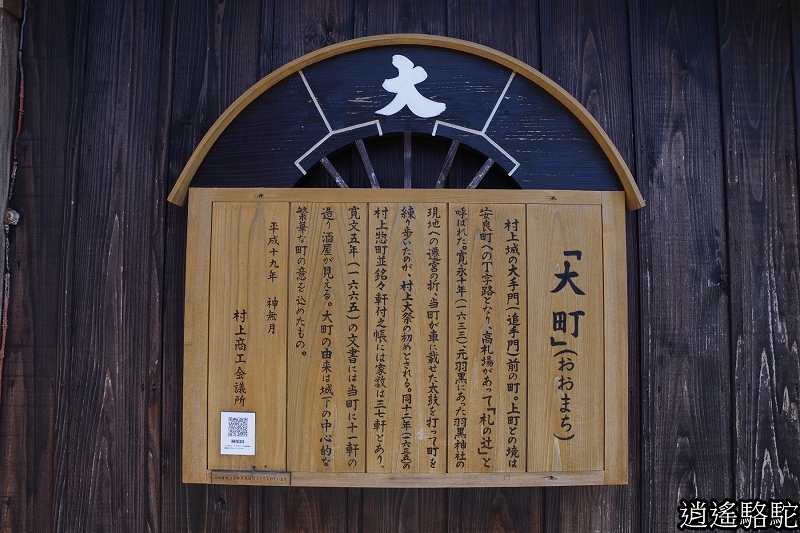 大
「大町」(おおまち)
村上城の大手門(追手門)前の町。上町との境は
安良町への丁字路となり、高札場があって「札の辻」と
呼ばれた。寛永十年(一六三三)、元羽黒にあった羽黒神社の
現地への遷宮の折、当町が車に載せた太鼓を打って町を
練り歩いたのが、村上大祭の初めとされる。同十二年(一六三五)の
村上惣町並銘々軒付之帳には家数は三七軒とあり、
寛文五年(一六六五)の文書には当町に十一軒の
造り酒屋が見える。大町の由来は城下の中心的な
繁華な町の意を込めたもの。
平成十九年 神無月
村上商工会議所
逍遙駱駝